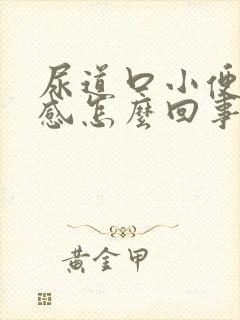 尿道口小便
感怎麼回事
黃金甲